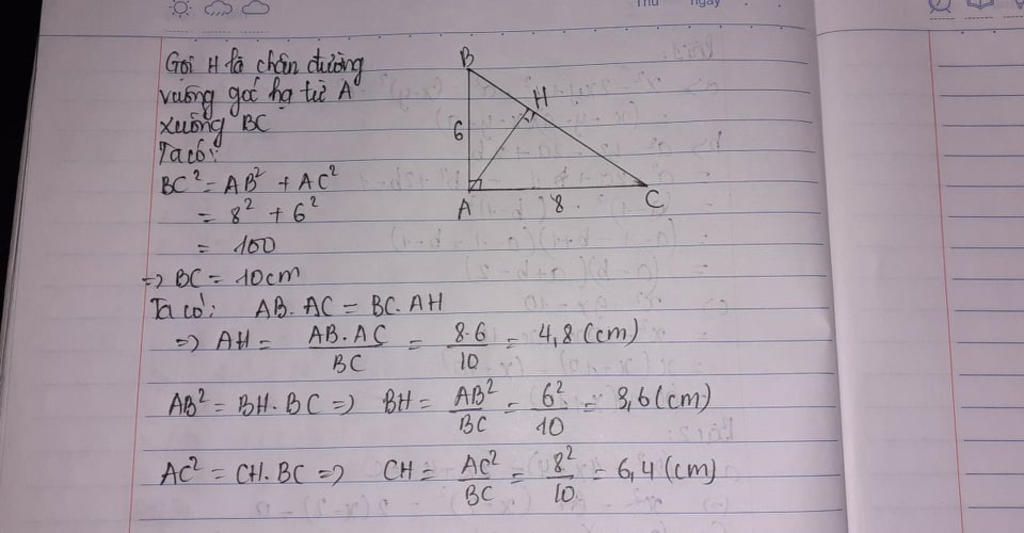 Thứ ngày
Gọi H là chân đường
vuông góc hạ từ A
xuống BC
Ta có:
BC² = AB² + AC²
= 8² + 6²
= 100
=> BC = 10cm
B
H
6
A
8
C
Ta có: AB. AC = BC. AH
=> AH = AB. AC / BC = 8.6 / 10 = 4,8 (cm)
AB² = BH. BC => BH = AB² / BC = 6² / 10 = 3,6 (cm)
AC² = CH. BC => CH = AC² / BC = 8² / 10 = 6,4 (cm)